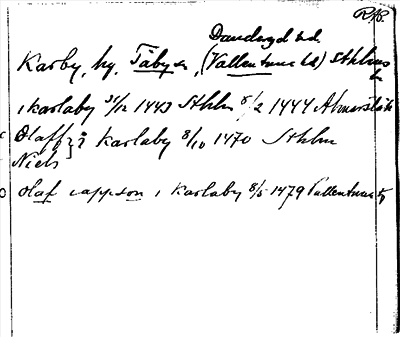 RAP.
Danderyd hd.
Karby, by. Täby sn, (Vallentuna hd) Sthlms
i karlaby 31/12 1443 Sthlm 5/2 1444
Olaff } i karlaby 8/10 1470 Sthlm
Niels
olaf cappson i karlaby 8/5 1479 Vallentuna